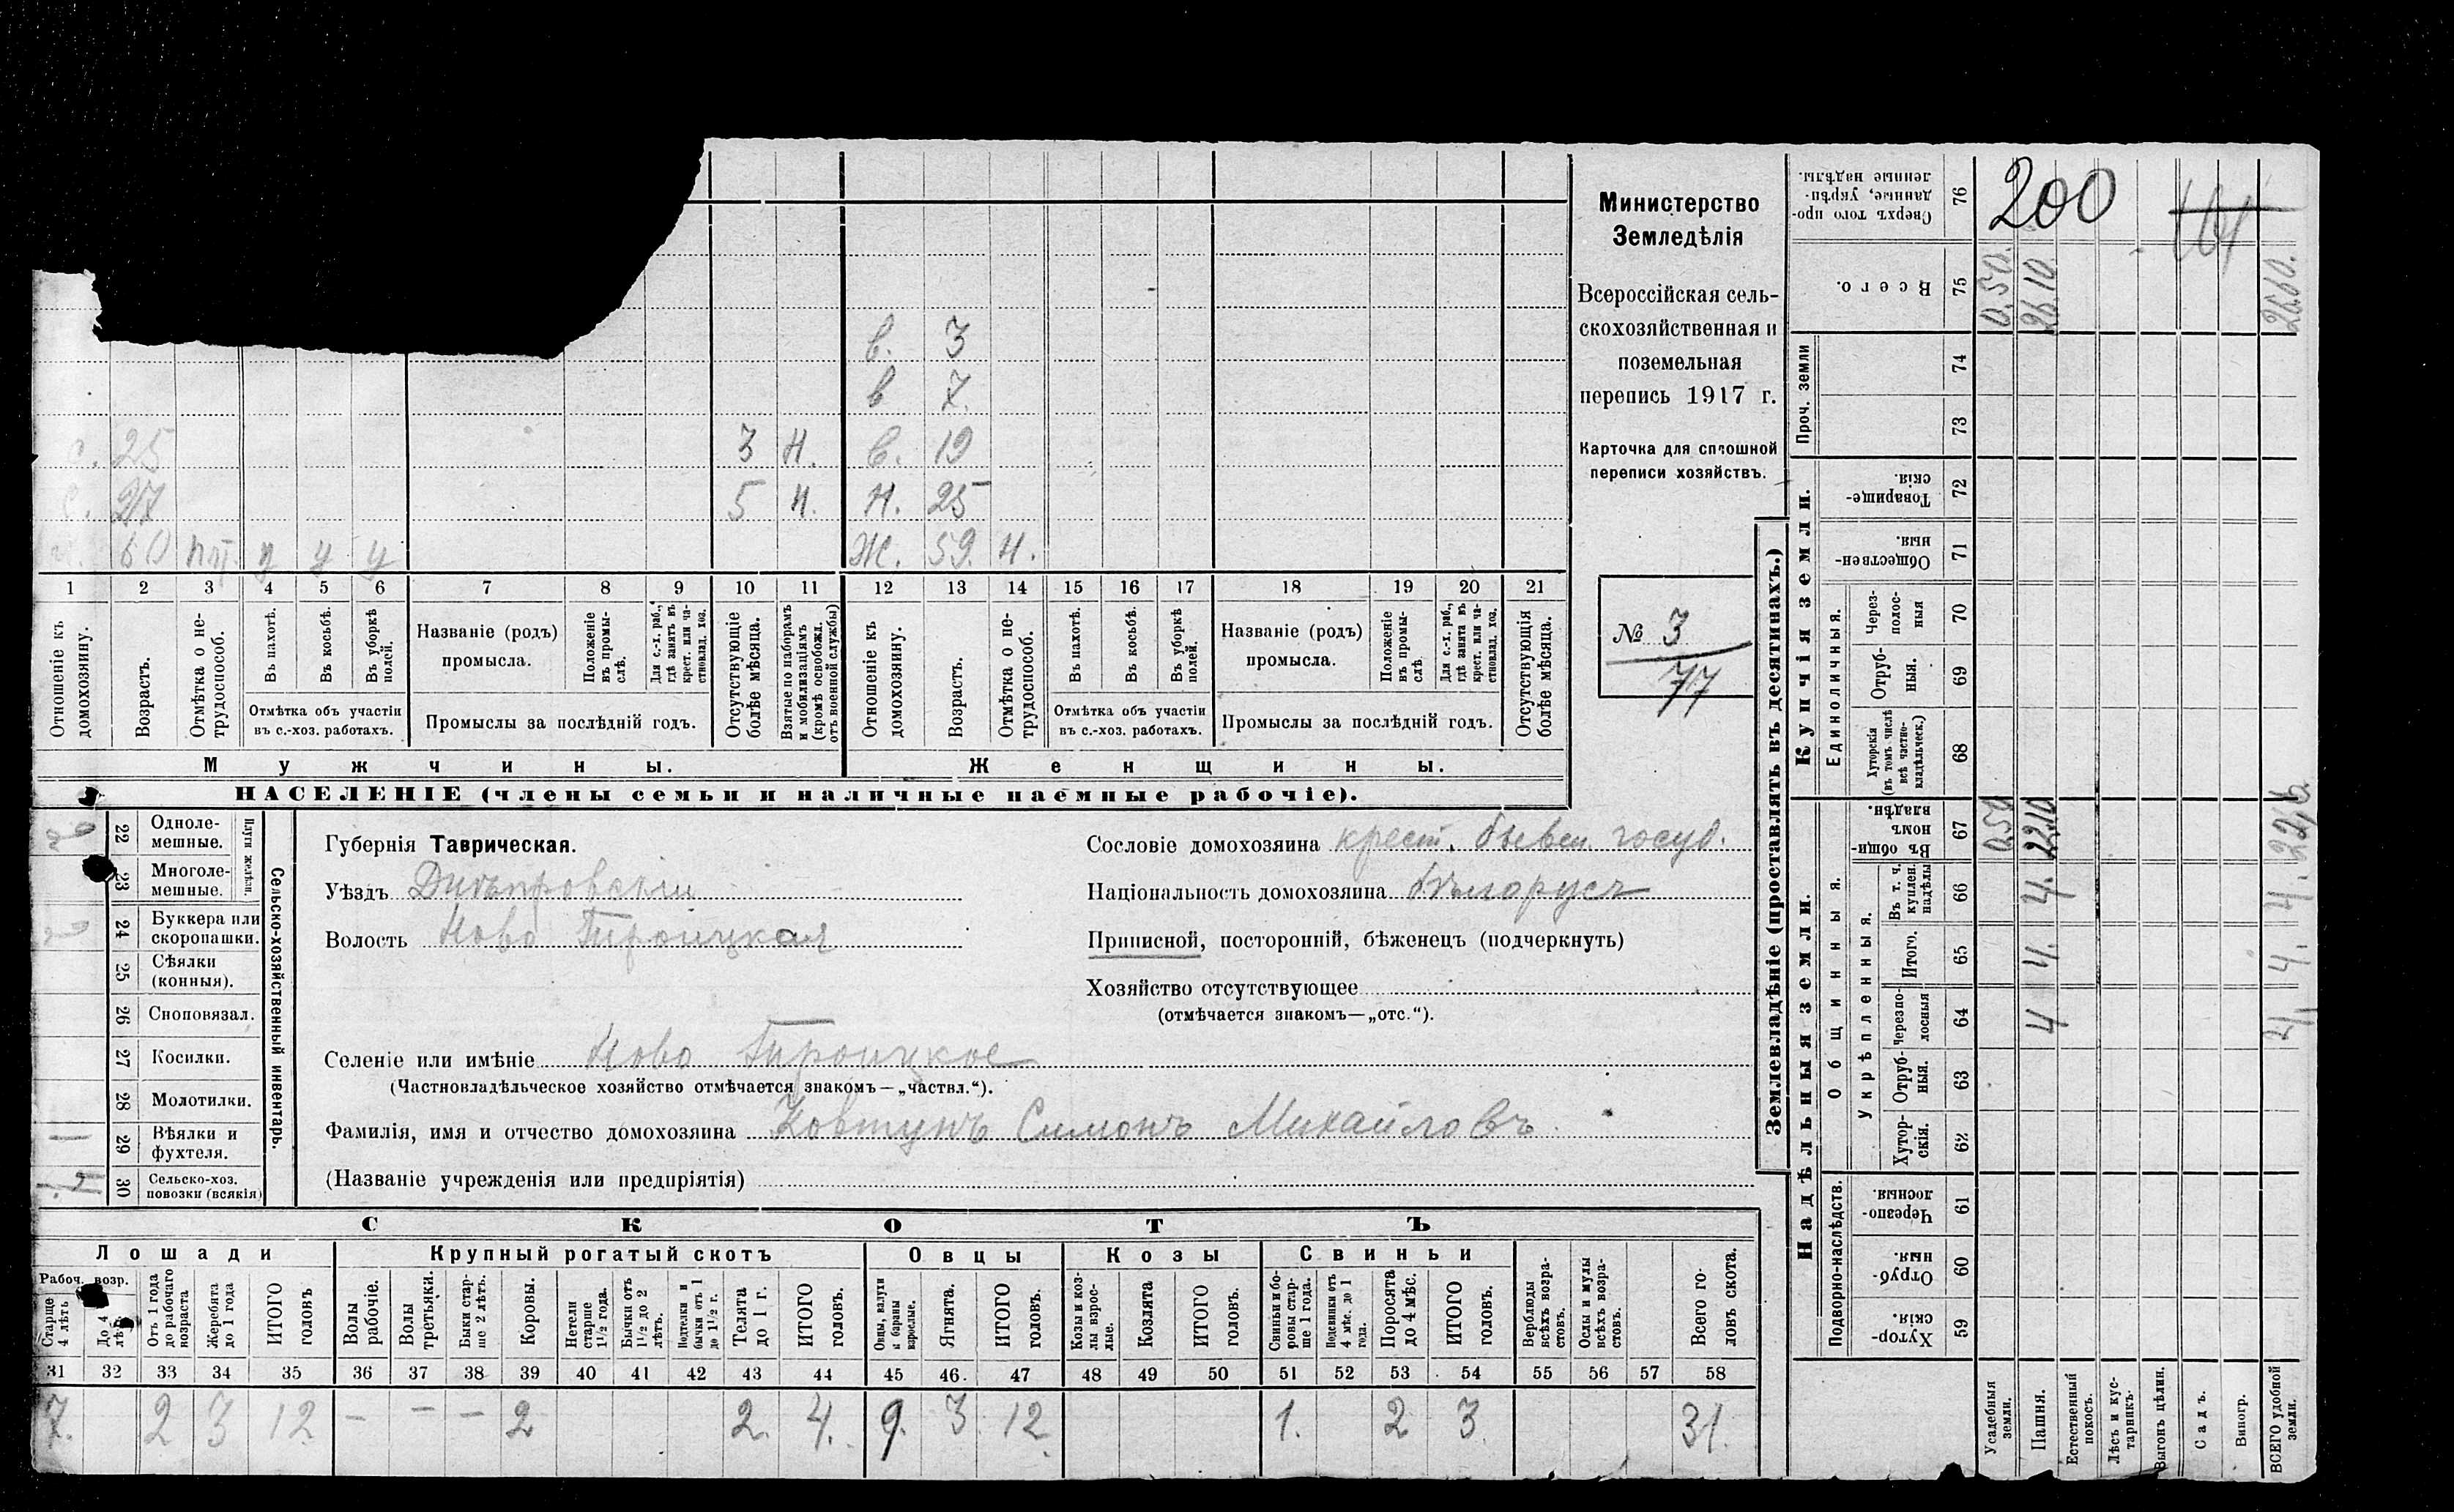 200
в. 3
в 7.
с. 25 3 н. в. 19
с. 27 5 н. н. 25
60 у у у ж. 59. н.
1 2 3 4 5 6 7 8 9 10 11 12 13 14 15 16 17 18 19 20 21
Отношеніе къ домохозяину.
Возрастъ.
Отмѣтка о не-
трудоспособ.
Въ пахотѣ.
Въ косьбѣ.
Въ уборкѣ полей.
Отмѣтка объ участіи
въ с.-хоз. работахъ.
Названіе (родъ)
промысла.
Положеніе
въ промы-
слѣ.
Для с.-х. раб.,
гдѣ занятъ въ
крест. или ча-
стновлад. хоз.
Промыслы за послѣдній годъ.
Отсутствующіе
болѣе мѣсяца.
Взятые по наборамъ
и мобилизаціямъ
(кромѣ освобожд.
отъ военной службы)
Отношеніе къ
домохозяину.
Возрастъ.
Отмѣтка о не-
трудоспособ.
Въ пахотѣ.
Въ косьбѣ.
Въ уборкѣ
полей.
Отмѣтка объ участіи
въ с.-хоз. работахъ.
Названіе (родъ)
промысла.
Положеніе
въ промы-
слѣ.
Для с.-х. раб.,
гдѣ занята въ
крест. или ча-
стновлад. хоз.
Промыслы за послѣдній годъ.
Отсутствующія
болѣе мѣсяца.
Мужчины.
Женщины.
НАСЕЛЕНІЕ (члены семьи и наличные наемные рабочіе).
Министерство
Земледѣлія
Всероссійская сель-
скохозяйственная и
поземельная
перепись 1917 г.
Карточка для сплошной
переписи хозяйствъ.
№ 3
77
22 Одноле-
мешные.
23 Многоле-
мешные.
Плуги желѣзн.
24 Буккера или
скоропашки.
25 Сѣялки
(конныя).
26 Сноповязал.
27 Косилки.
28 Молотилки.
1 29 Вѣялки и
фухтеля.
30 Сельско-хоз.
повозки (всякія)
Сельско-хозяйственный инвентарь.
Губернія Таврическая.
Уѣздъ Днѣпровскій
Волость Ново Троицкая
Селеніе или имѣніе Ново Троицкое
(Частновладѣльческое хозяйство отмѣчается знакомъ—„частвл.“).
Фамилія, имя и отчество домохозяина Ковтунъ Симонъ Михайловъ
(Названіе учрежденія или предпріятія)
Сословіе домохозяина крест. бывш. госуд.
Національность домохозяина бѣлорусъ
Приписной, посторонній, бѣженецъ (подчеркнуть)
Хозяйство отсутствующее
(отмѣчается знакомъ—„отс.“).
СКОТЪ
Лошади Крупный рогатый скотъ Овцы Козы Свиньи
Рабоч. возр.
Старше
4 лѣтъ
До 4
лѣтъ
Отъ 1 года
до рабочаго
возраста
Жеребята
до 1 года
ИТОГО
головъ
Волы
рабочіе.
Волы
третьяки.
Быки стар-
ше 2 лѣтъ.
Коровы.
Нетели
старше
1½ года.
Бычки отъ
1½ до 2
лѣтъ.
Подтелки и
бычки отъ 1
до 1½ г.
Телята
до 1 г.
ИТОГО
головъ.
Овцы, валухи
и бараны
взрослые.
Ягнята.
ИТОГО
головъ.
Козы и коз-
лы взрос-
лые.
Козлята
ИТОГО
головъ.
Свиньи и бо-
ровы стар-
ше 1 года.
Подсвинки отъ
4 мѣс. до 1
года.
Поросята
до 4 мѣс.
ИТОГО
головъ.
Верблюды
всѣхъ возра-
стовъ.
Ослы и мулы
всѣхъ возра-
стовъ.
Всего го-
ловъ скота.
31 32 33 34 35 36 37 38 39 40 41 42 43 44 45 46. 47 48 49 50 51 52 53 54 55 56 57 58
7. 2 3 12 — — — 2 2. 4. 9. 3 12. 1. 2 3 31.
Землевладѣніе (проставлять въ десятинахъ.)
Купчія земли.
Надѣльныя земли.
Сверхъ того про-
данные, укрѣп-
ленные надѣлы. 76
Всего. 75 0,50. 26.10. 26.60.
Проч. земли 74 73
Товарище-
скія. 72
Обществен-
ныя. 71
Единоличныя.
Через-
полос-
ныя 70
Отруб-
ныя. 69
Хуторскія
(въ томъ числѣ
всѣ частно-
владѣльческ.) 68
Общинныя.
Въ общин-
номъ
владѣн. 67 0.50 22.10 22,6.
Укрѣпленныя.
Въ т. ч.
куплен.
надѣлы 66 4. 4.
Итого. 65 4. 4.
Черезпо-
лосныя 64 4 4.
Отруб-
ныя. 63
Хутор-
скія. 62
Подворно-наслѣдств.
Черезпо-
лосныя. 61
Отруб-
ныя. 60
Хутор-
скія. 59
Усадебныя
земли.
Пашня.
Естественный
покосъ.
Лѣсъ и кус-
тарникъ.
Выгонъ цѣлин.
Садъ.
Виногр.
ВСЕГО удобной
земли.